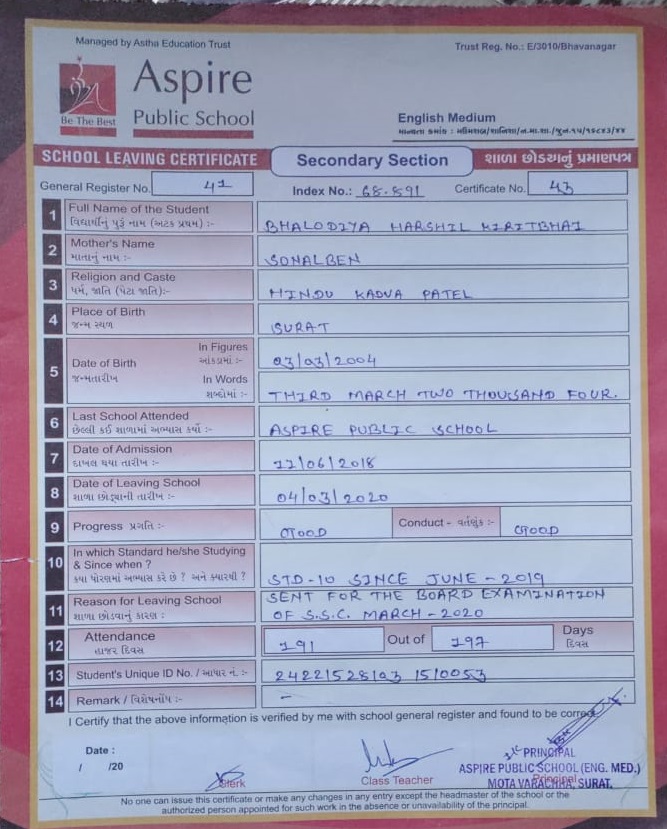 Managed by Astha Education Trust
Trust Reg. No.: E/3010/Bhavanagar
Aspire
Public School
Be The Best
English Medium
SCHOOL LEAVING CERTIFICATE
Secondary Section
શાળા છોડ્યાનું પ્રમાણપત્ર
General Register No. 41
Index No.: 68.891
Certificate No. 43
1 Full Name of the Student
વિદ્યાર્થીનું પુરૂં નામ (અટક પ્રથમ) :-
BHALODIYA HARSHIL KIRITBHAI
2 Mother's Name
માતાનું નામ :-
SONALBEN
3 Religion and Caste
ધર્મ, જાતિ (પેટા જાતિ):-
HINDU KADVA PATEL
4 Place of Birth
જન્મ સ્થળ
SURAT
5 Date of Birth
જન્મતારીખ
In Figures
આંકડામાં :-
03/03/2004
In Words
શબ્દોમાં :-
THIRD MARCH TWO THOUSAND FOUR.
6 Last School Attended
છેલ્લી કઈ શાળામાં અભ્યાસ કર્યો :-
ASPIRE PUBLIC SCHOOL
7 Date of Admission
દાખલ થયા તારીખ :-
11/06/2018
8 Date of Leaving School
શાળા છોડ્યાની તારીખ :-
04/03/2020
9 Progress પ્રગતિ :-
GOOD
Conduct - વર્તણુંક :-
GOOD
10 In which Standard he/she Studying
& Since when ?
ક્યા ધોરણમાં અભ્યાસ કરે છે ? અને ક્યારથી ?
STD-10 SINCE JUNE - 2019
11 Reason for Leaving School
શાળા છોડવાનું કારણ :
SENT FOR THE BOARD EXAMINATION
OF S.S.C. MARCH - 2020
12 Attendance
હાજર દિવસ
191 Out of 197 Days
દિવસ
13 Student's Unique ID No. / આધાર નં. :-
24221528103 15/0053
14 Remark / વિશેષનોંધ :-
–
I Certify that the above information is verified by me with school general register and found to be correct.
Date :
/ /20
Clerk
Class Teacher
Principal
PRINCIPAL
ASPIRE PUBLIC SCHOOL (ENG. MED.)
MOTA VARACHHA, SURAT.
No one can issue this certificate or make any changes in any entry except the headmaster of the school or the
authorized person appointed for such work in the absence or unavailability of the principal.